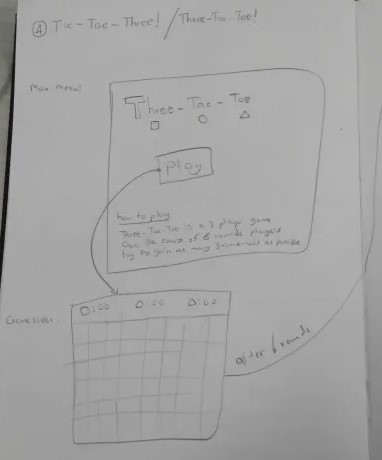 ④ Tic-Tac-Three! / Three-Tac-Toe!
Main menu:
Three-Tac-Toe
Play
how to play
Three-Tac-Toe is a 3 player game
Over the course of 6 rounds played
Try to gain as many 3 in a rows as possible
Game screen:
□:00 ○:00 △:00
after 6 rounds